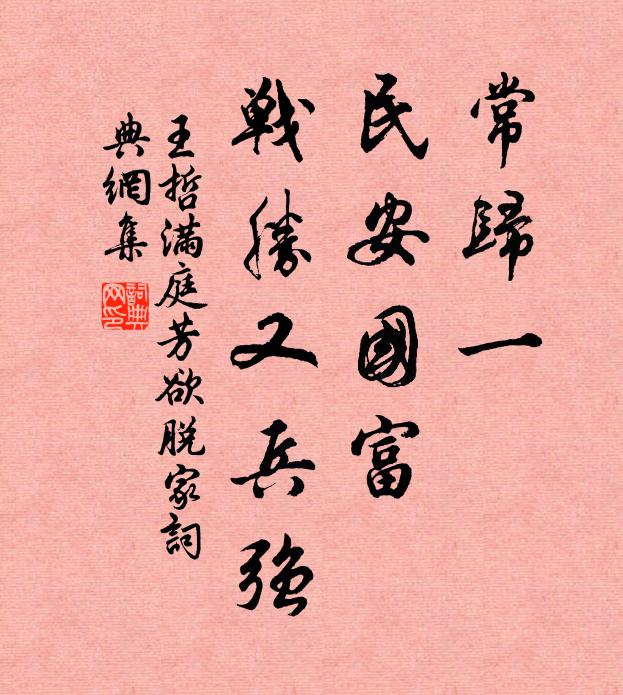 常歸一
民安國富
戰勝又兵強
王哲滿庭芳欲脫家詞
典網集
詞典
网印